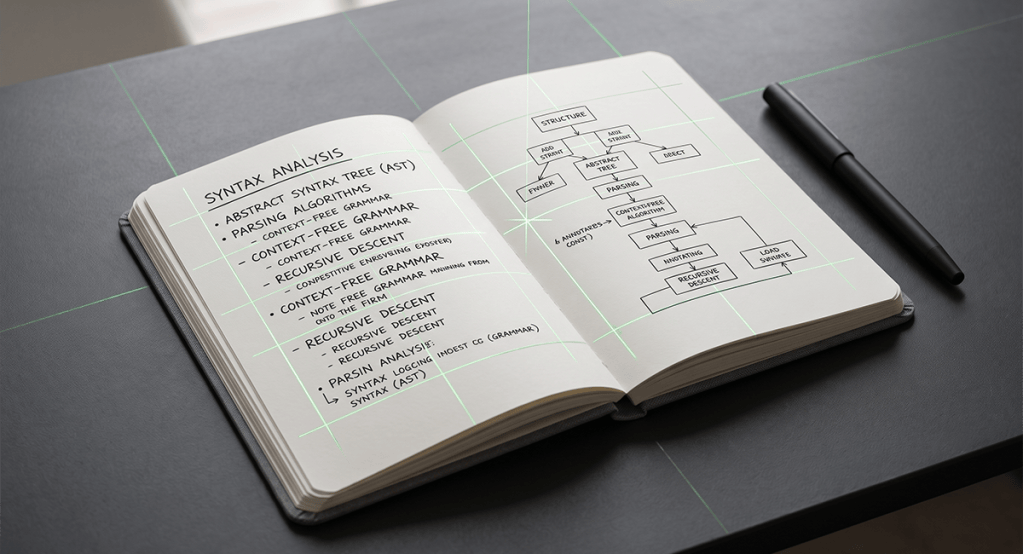 SYNTAX ANALYSIS
• ABSTRACT SYNTAX TREE (AST)
• PARSING ALGORITHMS
– CONTEXT-FREE GRAMMAR
– CONTEXT-FREE GRAMMAR
– CONTEXT-FREE GRAMMAR
– RECURSIVE DESCENT
– COMPETITIVE
• CONTEXT-FREE GRAMMAR
– NOTE FREE GRAMMAR FROM
ONTO THE FIRM
– RECURSIVE DESCENT
– RECURSIVE DESCENT
– RECURSIVE DESCENT
• PARSIN ANALYSIS:
↳ SYNTAX INDEST CC (GRAMMAR)
SYNTAX (AST)
STRUCTURE
ADD
ABSTRACT
TREE
PARSING
CONTEXT-FREE
ALGORITHM
CONST)
PARSING
NNOTATING
LOAD
RECURSIVE
DESCENT